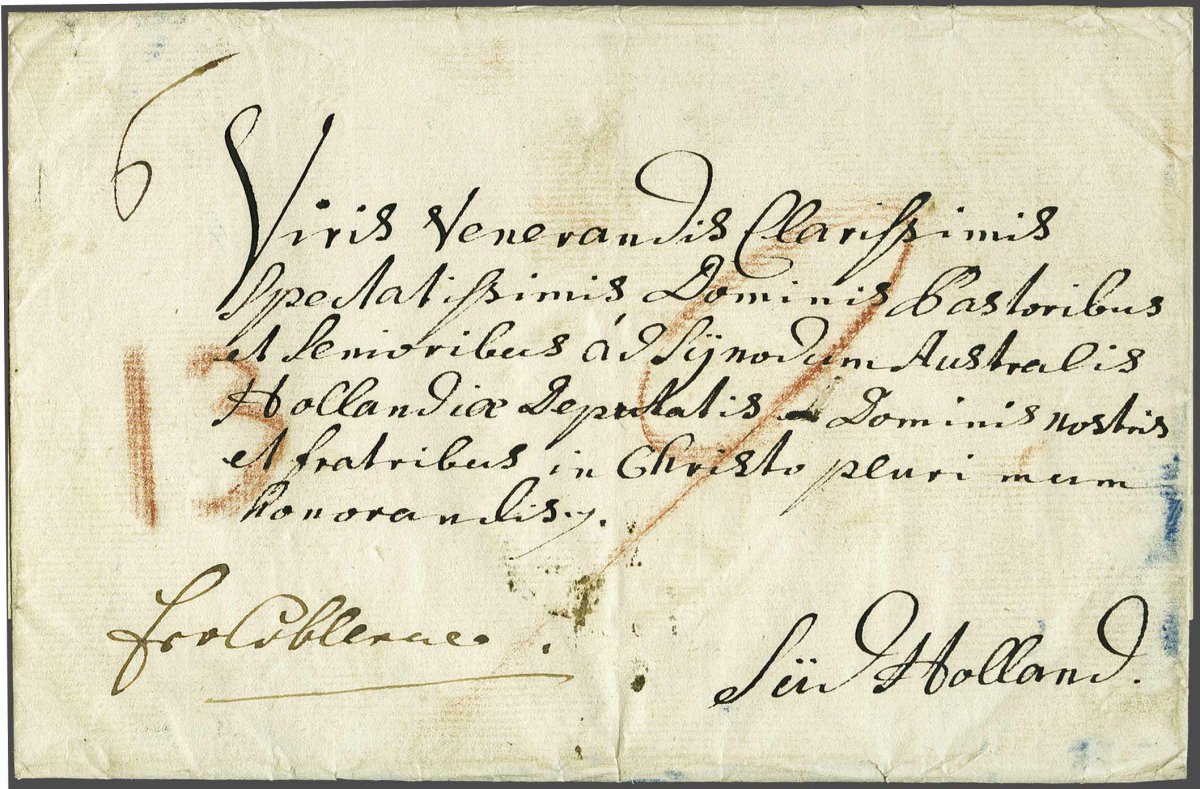 6
Viris Venerandis Clarissimis
Spectatissimis Dominis Pastoribus
et Senioribus ad Sÿnodum Australis
Hollandiæ Deputatis Dominis nostris
et fratribus in Christo plurimum
honorandis.
13
fro Coblence.
Süd Holland.